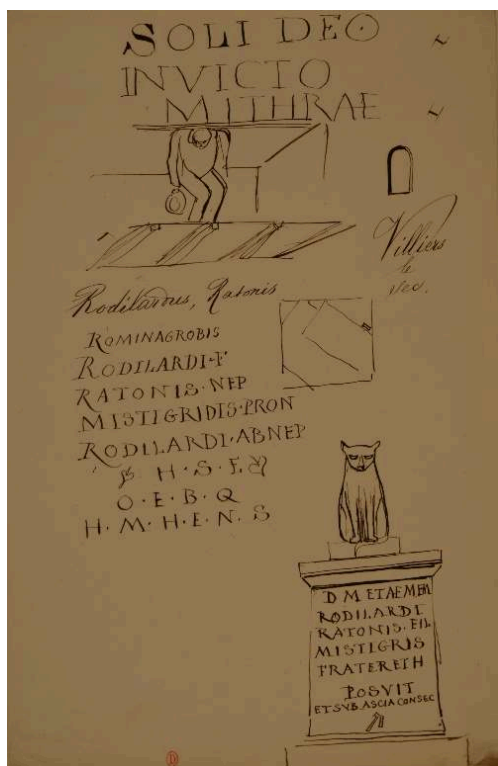 SOLI DEO
INVICTO
MITHRAE
Villiers
le
Rodilardus, Ratonis
ROMINAGROBIS
RODILARDI·F
RATONIS·NEP
MISTIGRIDIS·PRON
RODILARDI·ABNEP
H·S·E
O·E·B·Q
H·M·H·E·N·S
D M ET AEMEM
RODILARDI
RATONIS·FIL
MISTIGRIS
FRATERETH
POSVIT
ET SVB ASCIA CONSEC